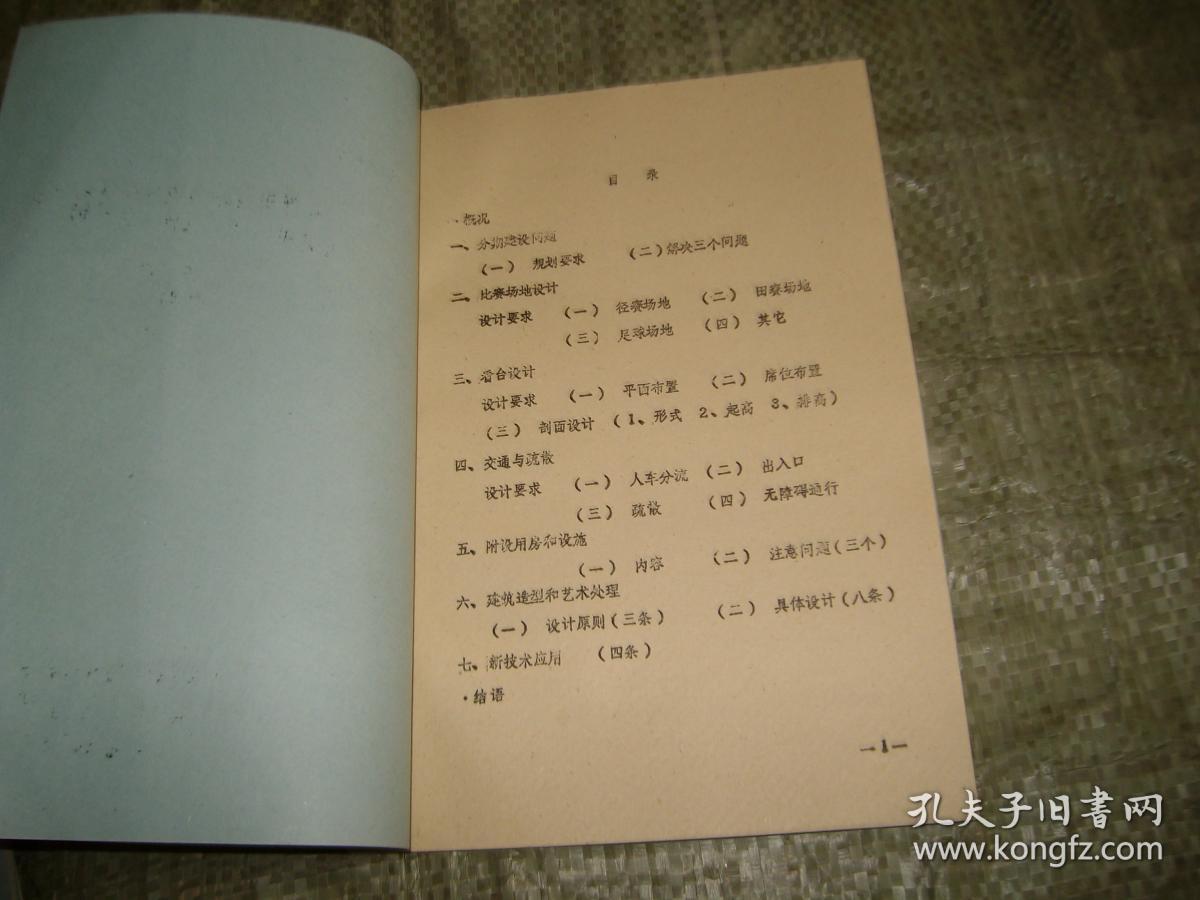 目 录
·概况
一、分期建设问题
(一) 规划要求 (二)解决三个问题
二、比赛场地设计
设计要求 (一) 径赛场地 (二) 田赛场地
(三) 足球场地 (四) 其它
三、看台设计
设计要求 (一) 平面布置 (二) 席位布置
(三) 剖面设计 (1、形式 2、起高 3、排高)
四、交通与疏散
设计要求 (一) 人车分流 (二) 出入口
(三) 疏散 (四) 无障碍通行
五、附设用房和设施
(一) 内容 (二) 注意问题(三个)
六、建筑造型和艺术处理
(一) 设计原则(三条) (二) 具体设计(八条)
七、新技术应用 (四条)
·结语
—1—
孔夫子旧書网
www.kongfz.com